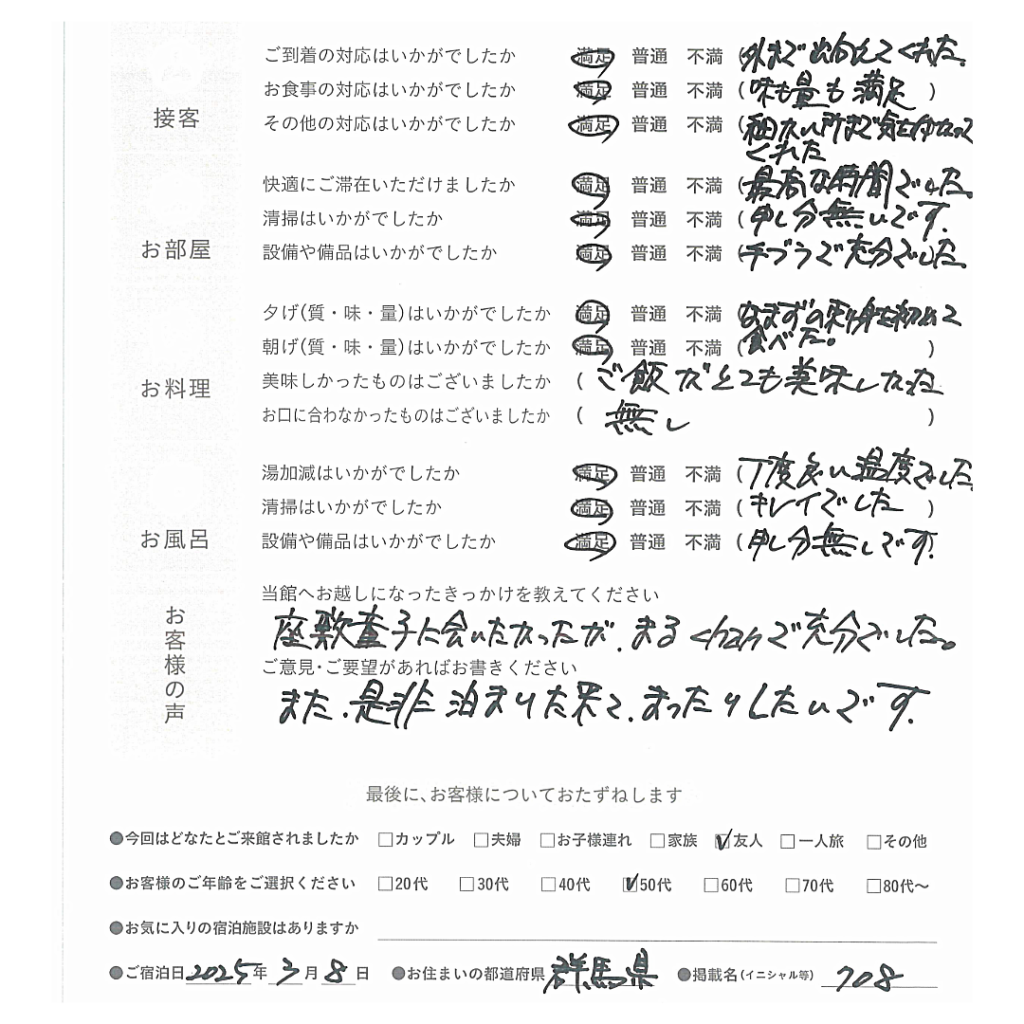 接客
ご到着の対応はいかがでしたか 満足 普通 不満 (外まで出迎えてくれた。
お食事の対応はいかがでしたか 満足 普通 不満 (味も量も満足)
その他の対応はいかがでしたか 満足 普通 不満 (細かい所まで気を付かって
くれた
お部屋
快適にご滞在いただけましたか 満足 普通 不満 (最高な時間でした。
清掃はいかがでしたか 満足 普通 不満 (申し分無いです。
設備や備品はいかがでしたか 満足 普通 不満 (手ブラで充分でした。
お料理
夕げ(質・味・量)はいかがでしたか 満足 普通 不満 (なまずの刺身を初めて
朝げ(質・味・量)はいかがでしたか 満足 普通 不満 (食べた。)
美味しかったものはございましたか (ご飯がとても美味しかった
お口に合わなかったものはございましたか (無し)
お風呂
湯加減はいかがでしたか 満足 普通 不満 (丁度良い温度でした
清掃はいかがでしたか 満足 普通 不満 (キレイでした)
設備や備品はいかがでしたか 満足 普通 不満 (申し分無しです。
お客様の声
当館へお越しになったきっかけを教えてください
座敷童子に会いたかったが、まるchanで充分でした。
ご意見・ご要望があればお書きください
また、是非泊まりた来て、まったりしたいです。
最後に、お客様についておたずねします
●今回はどなたとご来館されましたか □カップル □夫婦 □お子様連れ □家族 ☑友人 □一人旅 □その他
●お客様のご年齢をご選択ください □20代 □30代 □40代 ☑50代 □60代 □70代 □80代～
●お気に入りの宿泊施設はありますか
●ご宿泊日 2025年 3月8日 ●お住まいの都道府県 群馬県 ●掲載名(イニシャル等) 708